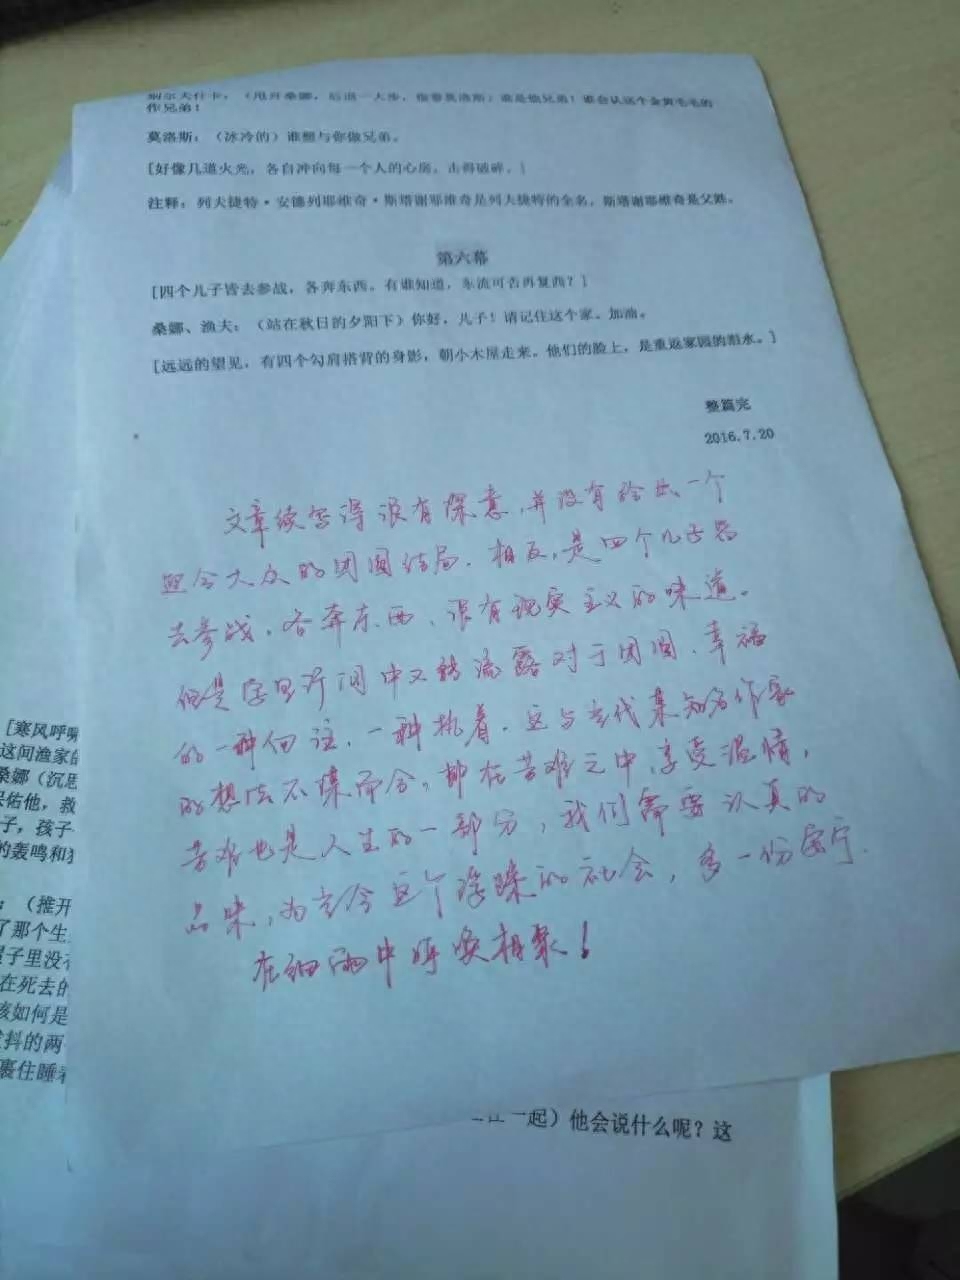 作兄弟！
莫洛斯：（冰冷的）谁想与你做兄弟。
[好像几道火光，各自冲向每一个人的心房，击得破碎。]
注释：列夫捷特·安德列耶维奇·斯塔谢耶维奇是列夫捷特的全名，斯塔谢耶维奇是父姓。
第六幕
[四个儿子皆去参战，各奔东西。有谁知道，东流可否再复西？]
桑娜、渔夫：（站在秋日的夕阳下）你好，儿子！请记住这个家。加油。
[远远的望见，有四个勾肩搭背的身影，朝小木屋走来。他们的脸上，是重返家园的泪水。]
整篇完
2016.7.20
文章续写得很有深意，并没有给出一个
迎合大众的团圆结局。相反，是四个儿子皆
去参战，各奔东西，很有现实主义的味道。
但是字里行间中又能流露对于团圆、幸福
的一种向往，一种执着。这与当代某知名作家
的想法不谋而合，即在苦难之中，享受温情，
苦难也是人生的一部分，我们需要认真的
品味，为当今这个浮躁的社会，多一份安宁。
在细雨中呼唤相聚！
[寒风呼啸
这间渔家的
桑娜（沉思
保佑他，救
子，孩子
的轰鸣和狂
：（推开
了那个生
屋子里没有
在死去的
该如何是
发抖的两个
裹住睡着
一起）他会说什么呢？这